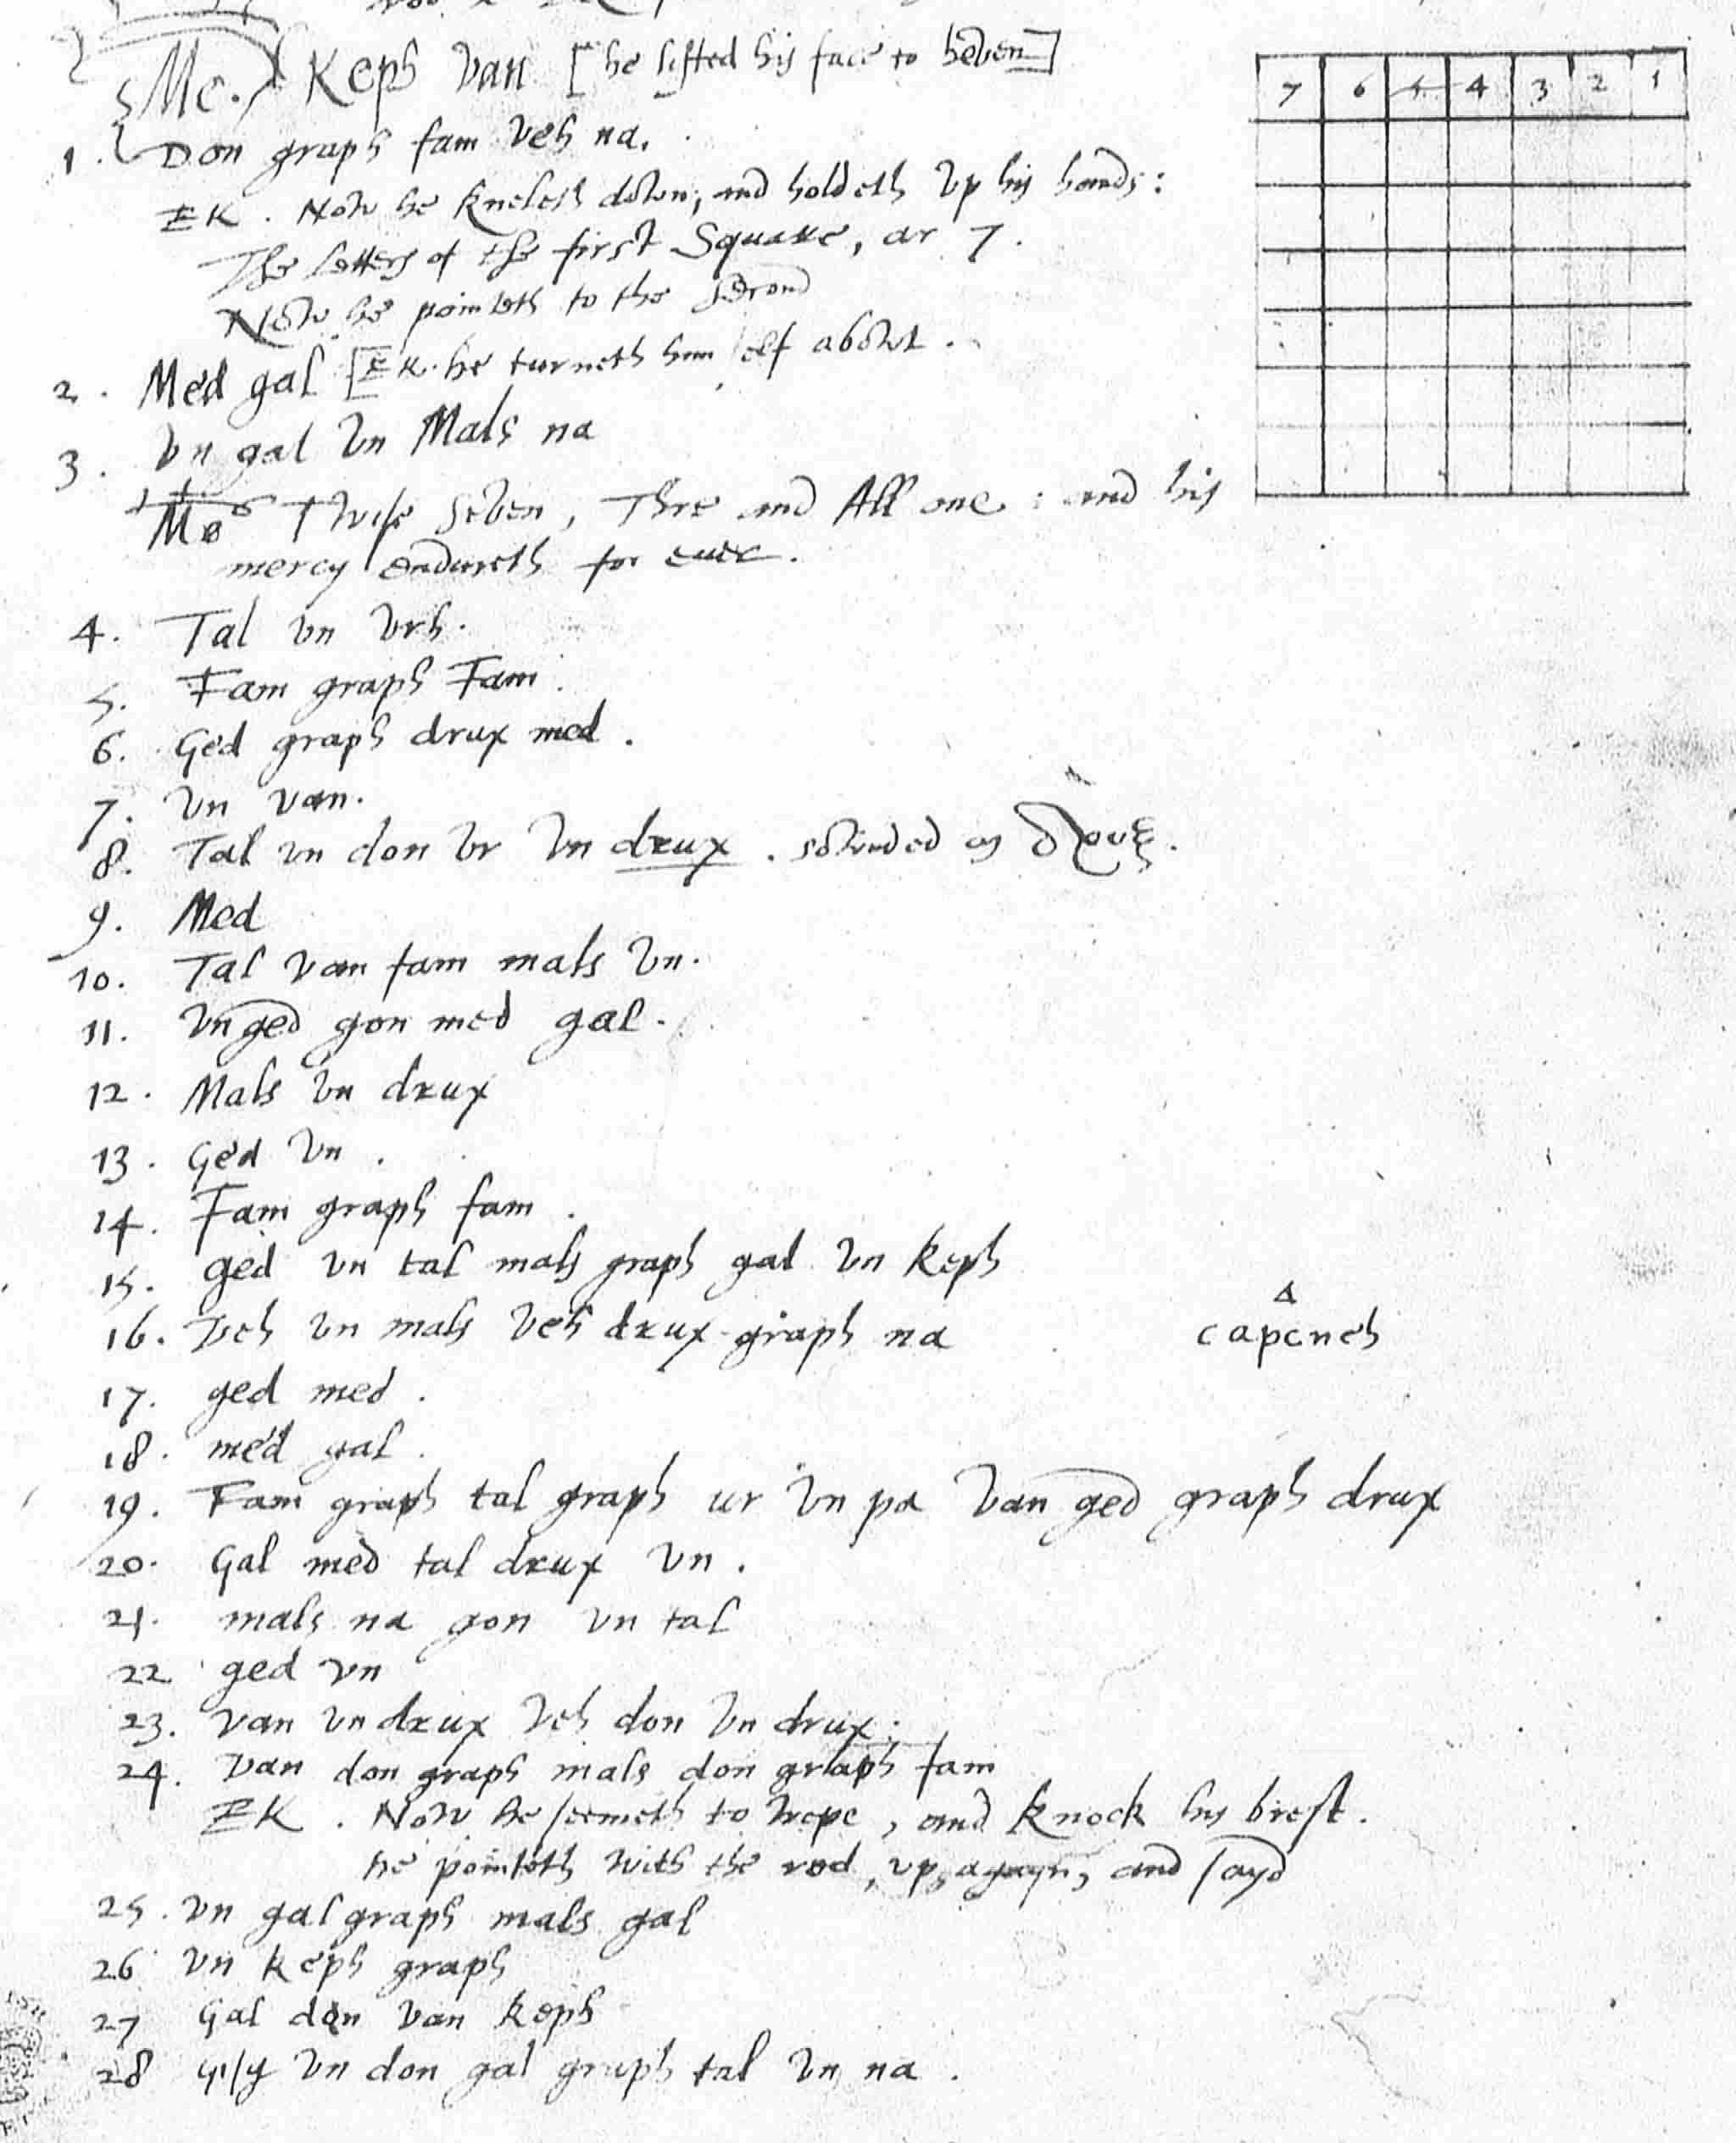 Me. Keph van [he lifted his face to heven]
7 6 5 4 3 2 1
1. Don graph fam veh na.
EK. Now he kneleth down, and holdeth vp his hands:
The letters of the first Square, ar 7.
Now he pointeth to the second
2. Med gal [EK. he turneth him self abowt.
3. Vn gal vn Mals na
Me Twise seven, Thre and All one: and his
mercy endureth for euer.
4. Tal vn vrh.
5. Fam graph Fam.
6. Ged graph drux med.
7. vn van.
8. Tal vn don vr vn drux. sownded as δρουξ.
9. Med
10. Tal van fam mals vn.
11. vn ged gon med gal.
12. Mals vn drux
13. Ged vn.
14. Fam graph fam.
15. ged vn tal mals graph gal vn keph
16. Veh vn mals veh drux graph na
Δ
capeneh
17. ged med.
18. med gal.
19. Fam graph tal graph ur vn pa van ged graph drux
20. Gal med tal drux vn.
21. mals na gon vn tal
22 ged vn
23. van vn drux veh don vn drux.
24. van don graph mals don graph fam
EK. Now he seemeth to wepe, and knock his brest.
he pointeth with the rod, vp, agayn, and sayd
25. vn gal graph mals gal
26 vn keph graph
27 Gal don van keph
28 vn don gal graph tal vn na.